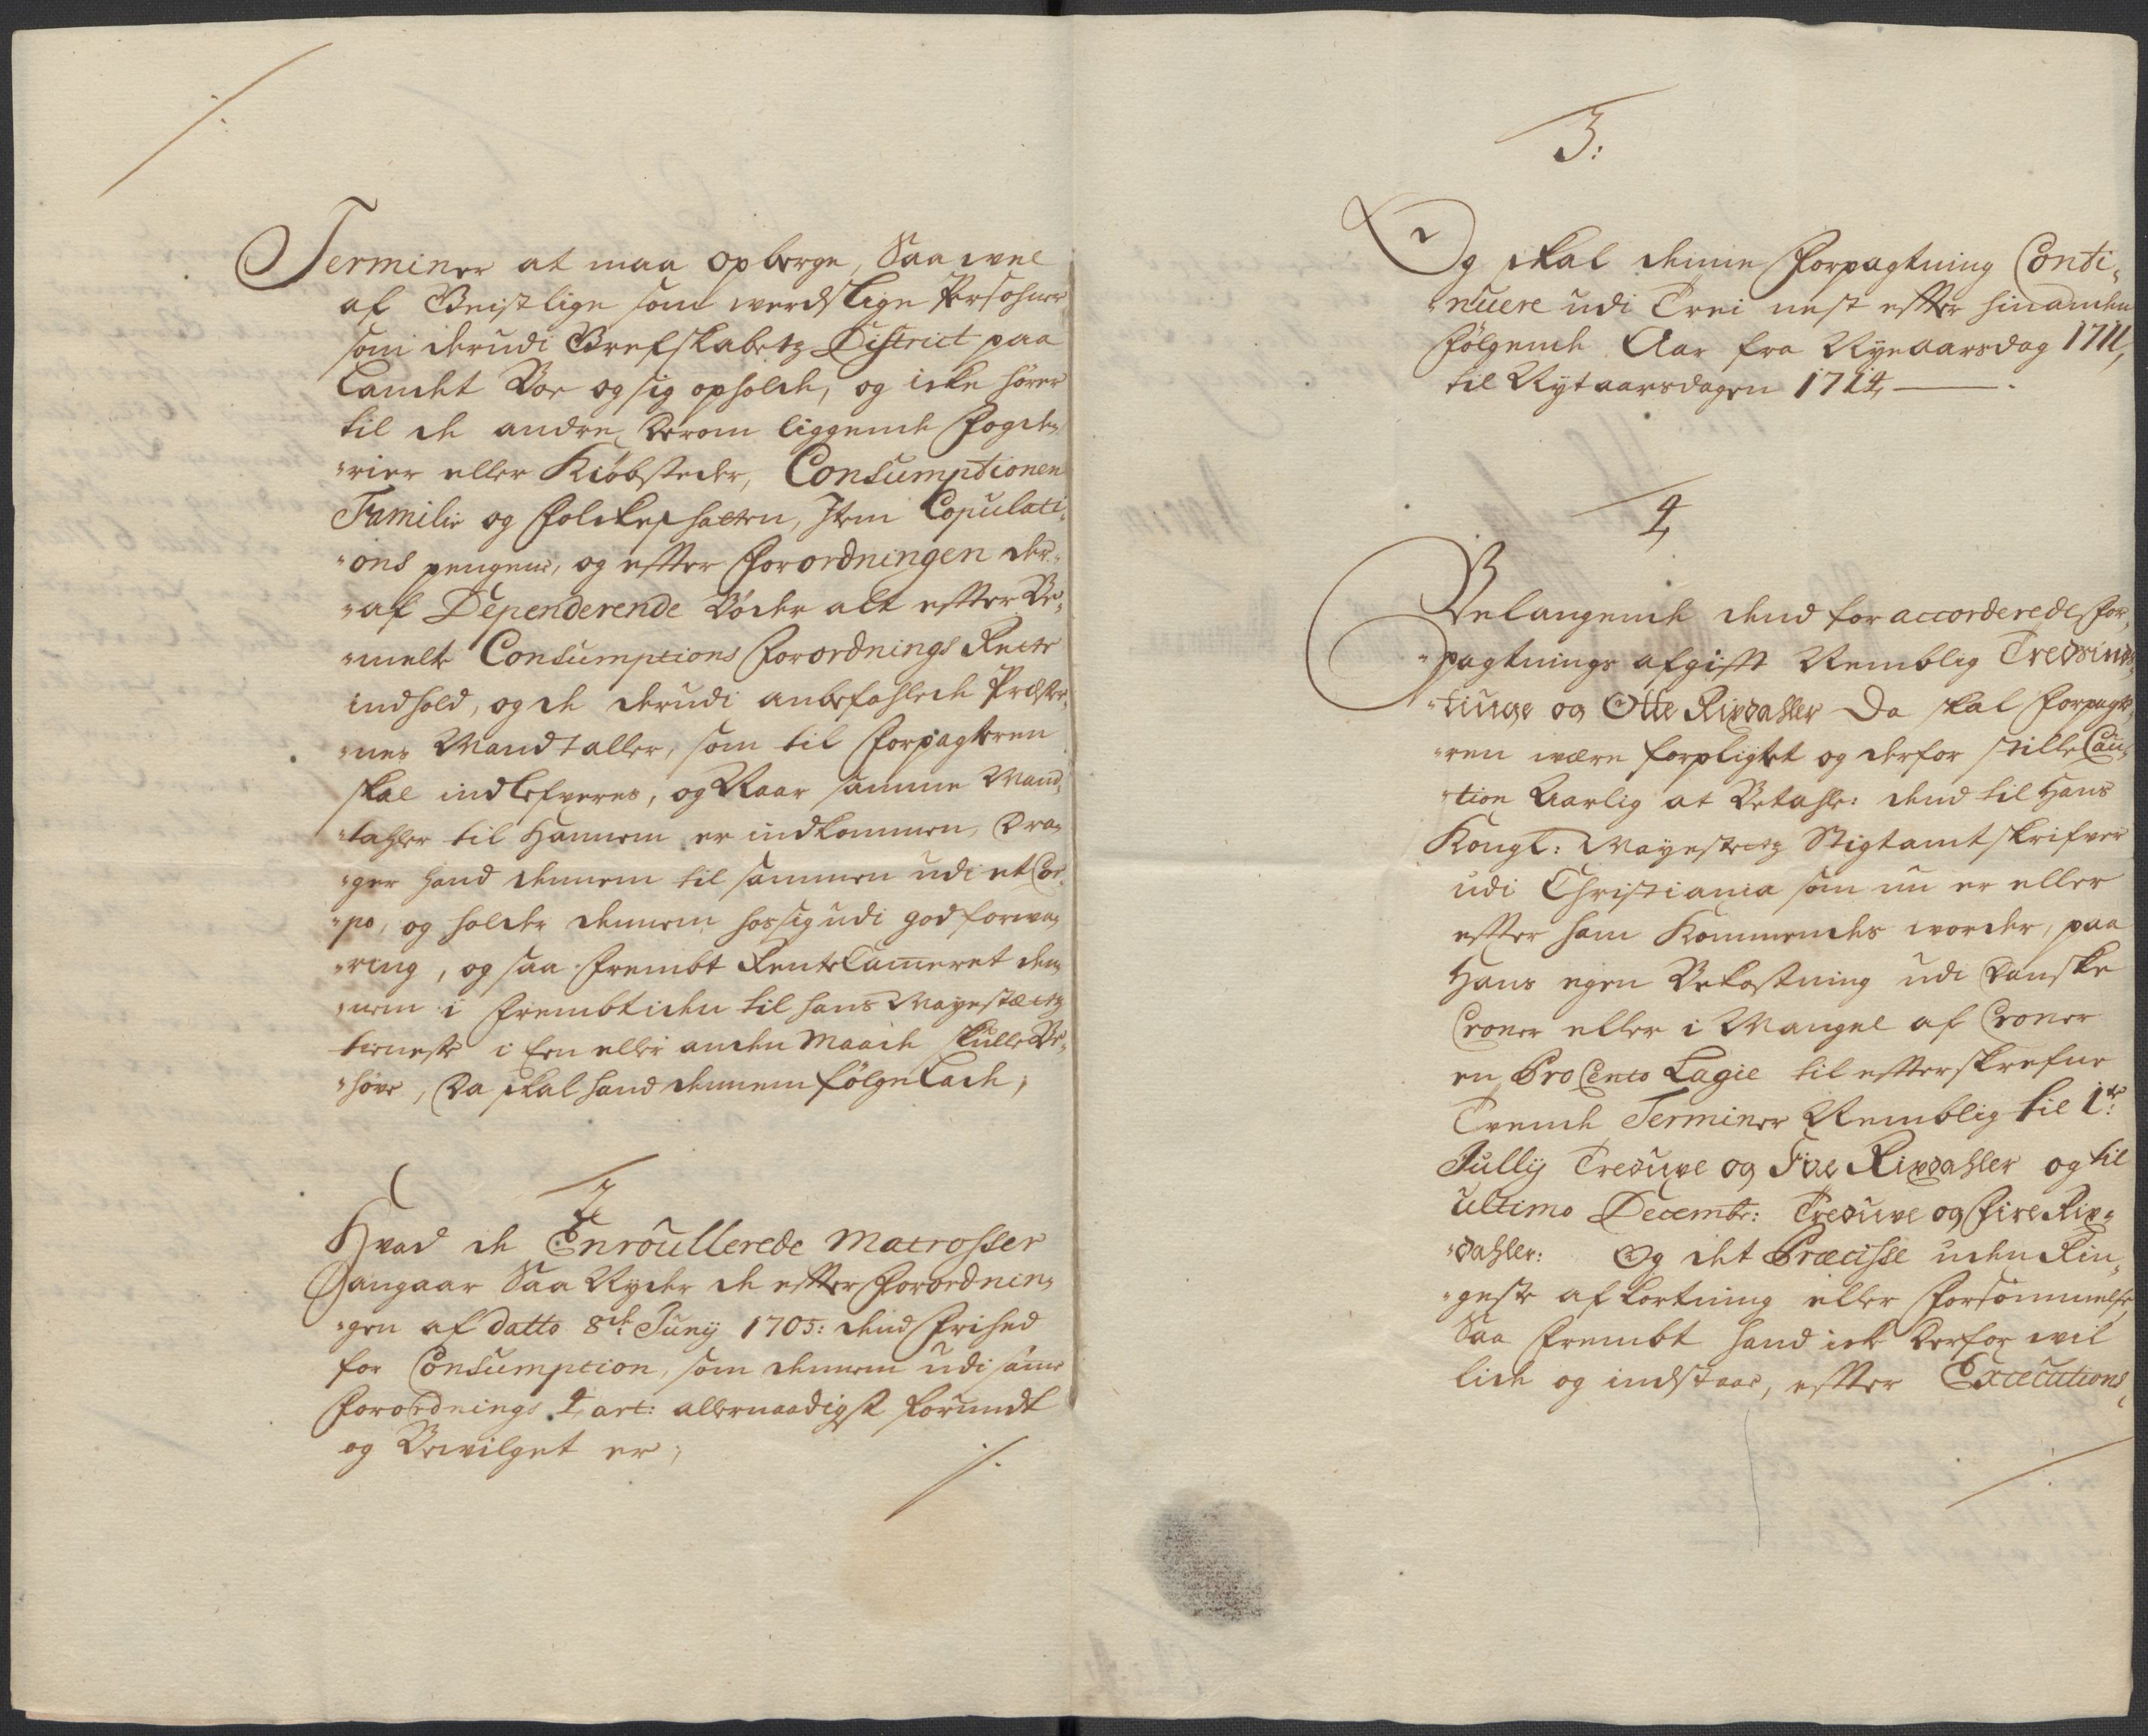 Terminer at maa opberge, Saa wel
af Geistlige som werdslige Persohner
som derudi Grefskabetz District paa
Landet Boe og sig opholde, og icke hører
til de andre derom liggende Fogde¬
"rier eller Kiøbsteder, Consumptionen
Familie og Folckeskatten, Item Copulati¬
"ons pengene, og efter Forordningen der¬
"af Dependerende Bøder alt efter Be¬
"melte Consumptions Forordnings Rette
indhold, og de derudi anbefahlede Præster¬
"nes Mandtaller, som til Forpagteren
skal indlefveres, og Naar samme Mand¬
"tahler til Hannem er indkommen, Dra¬
"ger hand dennem til sammen udi et Cor¬
"po, og holder dennem hos sig udi god forva¬
"ring, og saa frembt RenteCameret den¬
"nem i frembtiden til hans Mayestætz
tieneste i Een eller anden Maade skulle Be¬
"høve, Da skal hand dennem følge Lade,
2
Hvad de Enroullerede Matrosser
Uangaar Saa Nyder de efter Forordnin¬
"gen af datto 8de Junij 1705: dend Frihed
for Consumption, som dennem udi same
Forordnings 4 art: allernaadigst forundt
og Bewilget er,
3:
Og skal denne Forpagtning Conti¬
"nuere udi Trei nest efter hinanden
følgende Aar fra Nyeaarsdag 1711,
til Nytaarsdagen 1714
4
Belangende dend foraccorderede For¬
"pagtnings afgift Nemblig Tredsinds¬
"tiuge og Otte Rixdahler Da skal Forpagte¬
"ren være forpligtet og derfor stille Cau¬
"tion Aarlig at Betahle: dend til Hans
Kongl: Mayestetz Stigtamtskrifver
udi Christiania som nu er eller
efter ham Kommendes vorder, paa
Hans egen Bekostning udi Danske
Croner eller i Mangel af Croner
en Pro Cento Lagie til efterskrefne
Tvende Terminer Nemblig til 1te:
Jully Treduve og Fire Rixdahler og til
ultimo Decembr: Treduve og Fire Rix¬
"dahler: Og det Præcisse uden Rin¬
"geste afkortning eller Forsømmelse
Saa frembt hand icke derfor vil
lide og indstaae, efter Executions